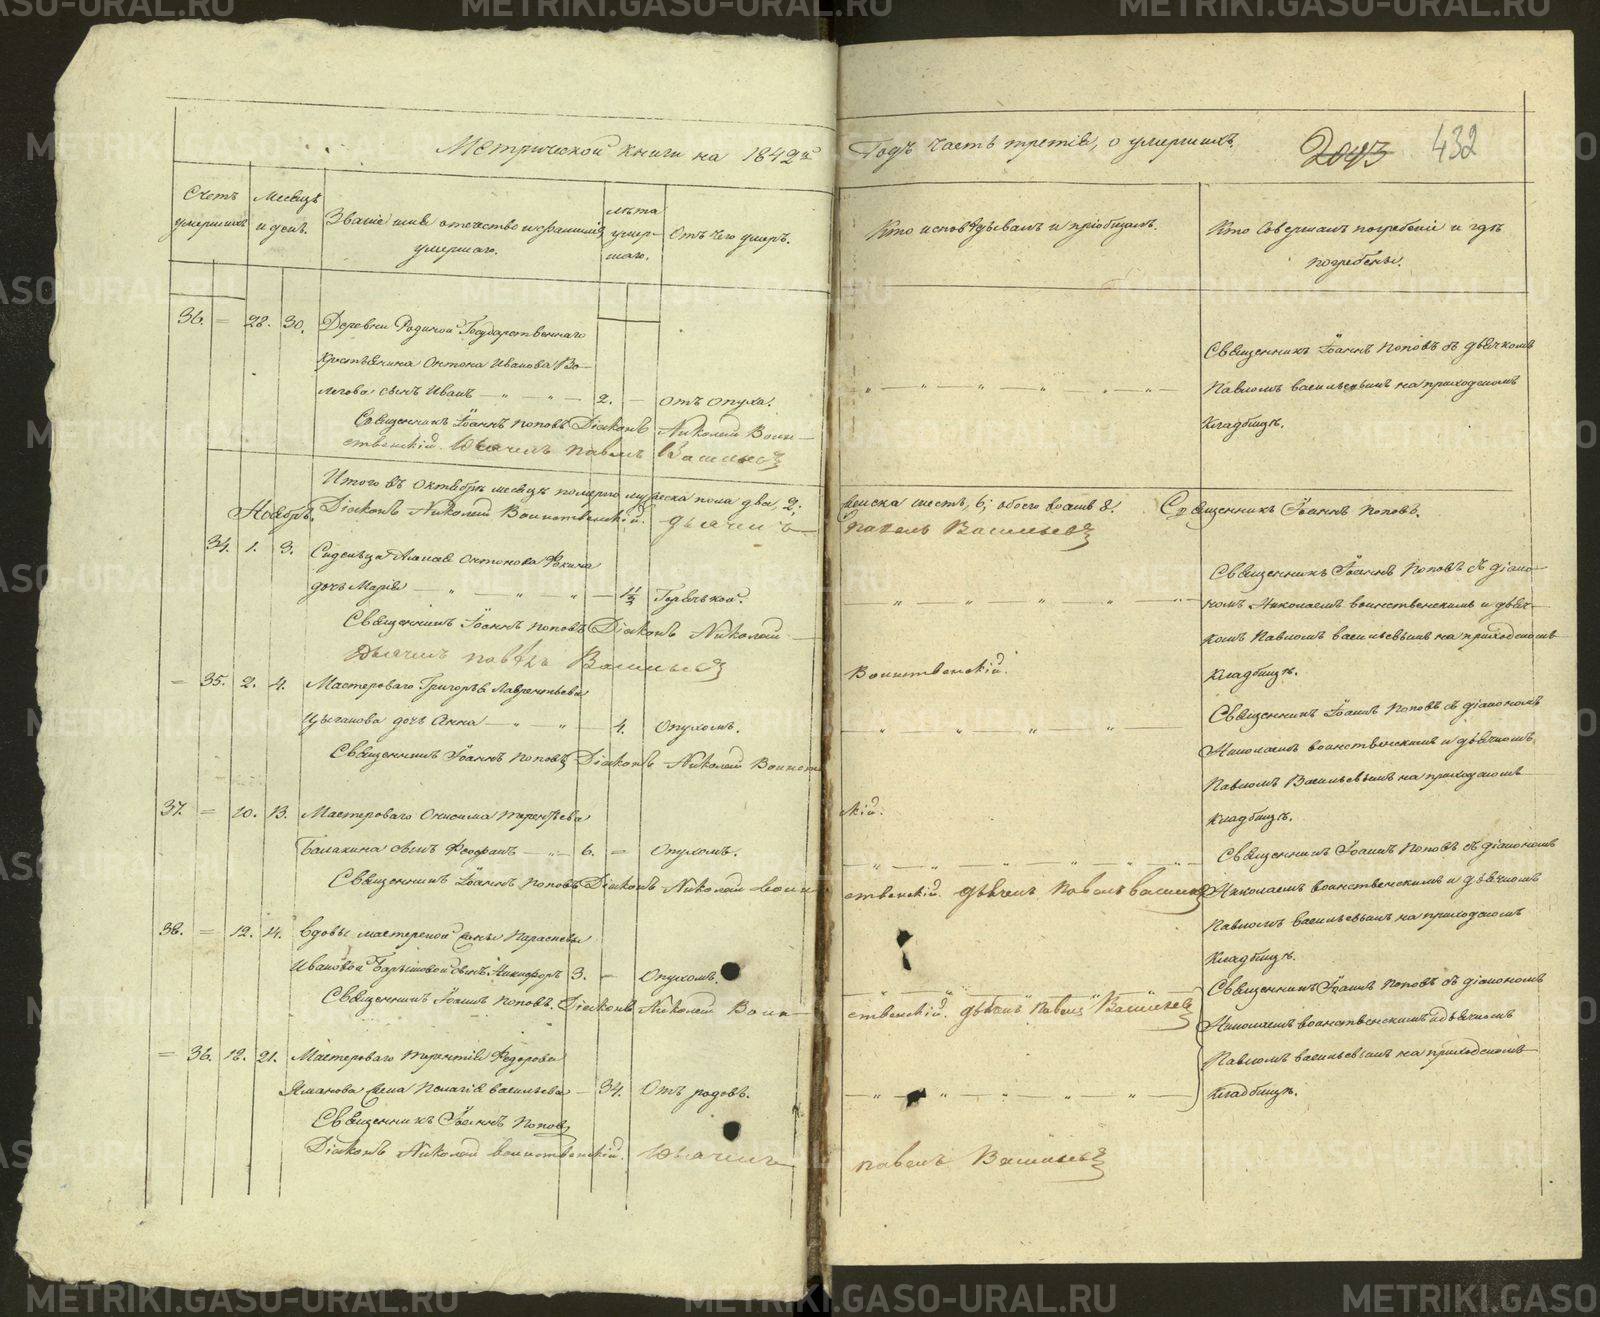 Метрической книги на 1842й
Годъ часть третія, о умершихъ.
2043
432
Счетъ умершихъ
Месяцъ и день.
Званіе имя отечество и фамилія умершаго.
лѣта умершаго.
Отъ чего умеръ.
Кто исповѣдывалъ и пріобщалъ.
Кто совершалъ погребеніе и гдѣ погребены.
36. = 28. 30. Деревни Государственнаго
Крестьянина Антона Иванова
сынъ Иванъ 2. — отъ опуха.
Священникъ Іоаннъ Поповъ Діаконъ Николай Воин-
ственскій. Дьячекъ Павелъ Васильевъ
Священникъ Іоаннъ Поповъ съ дьячкомъ
Павломъ Васильевымъ на приходскомъ
Кладбищѣ.
Итого въ Октябрѣ месяцѣ померло мужеска пола два, 2.
женска шесть, 6; обоего восемь 8. Священникъ Іоаннъ Поповъ.
Діаконъ Николай Воинственскій. Дьячекъ
Павелъ Васильевъ
Ноябрь.
34. 1. 3. Антонова
дочь Марія — 1½ Горячкой.
Священникъ Іоаннъ Поповъ Діаконъ Николай
Воинственскій.
Дьячекъ Павелъ Васильевъ
Священникъ Іоаннъ Поповъ съ діако-
номъ Николаемъ Воинственскимъ и дьяч-
комъ Павломъ Васильевымъ на приходскомъ
Кладбищѣ.
= 35. 2. 4. Мастероваго Григорья Лаврентьева
Цыганова дочь Анна — 4. Опухомъ.
Священникъ Іоаннъ Поповъ Діаконъ Николай Воинствен
скій.
Священникъ Іоаннъ Поповъ съ діакономъ
Николаемъ Воинственскимъ и дьячкомъ
Павломъ Васильевымъ на приходскомъ
Кладбищѣ.
37. = 10. 13. Мастероваго Онисима Терентьева
Балакина сынъ Феофанъ — 6. = Опухомъ.
Священникъ Іоаннъ Поповъ Діаконъ Николай Воин
ственскій. Дьячекъ Павелъ Васильевъ
Священникъ Іоаннъ Поповъ съ діакономъ
Николаемъ Воинственскимъ и дьячкомъ
Павломъ Васильевымъ на приходскомъ
Кладбищѣ.
38. = 12. 14. Вдовы мастерской жены Парасковьи
Ивановой сынъ Никифоръ 3. = Опухомъ.
Священникъ Іоаннъ Поповъ. Діаконъ Николай Воин-
ственскій. Дьячекъ Павелъ Васильевъ
Священникъ Іоаннъ Поповъ съ діакономъ
Николаемъ Воинственскимъ и дьячкомъ
Павломъ Васильевымъ на приходскомъ
Кладбищѣ.
= 36. 18. 21. Мастероваго Терентія Федорова
жена Пелагія Васильева — 34. Отъ родовъ.
Священникъ Іоаннъ Поповъ
Діаконъ Николай Воинственскій. Дьячекъ
Павелъ Васильевъ
METRIKI.GASO-URAL.RU